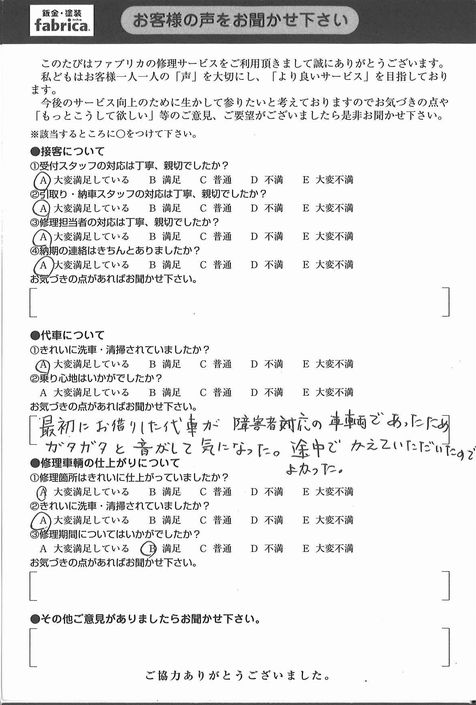 鈑金・塗装
fabrica.
お客様の声をお聞かせ下さい
このたびはファブリカの修理サービスをご利用頂きまして誠にありがとうございます。
私どもはお客様一人一人の「声」を大切にし、「より良いサービス」を目指しており
ます。
今後のサービス向上のために生かして参りたいと考えておりますのでお気づきの点や
「もっとこうして欲しい」等のご意見、ご要望がございましたら是非お聞かせ下さい。
※該当するところに〇をつけて下さい。
●接客について
①受付スタッフの対応は丁寧、親切でしたか？
A 大変満足している B 満足 C 普通 D 不満 E 大変不満
②引取り・納車スタッフの対応は丁寧、親切でしたか？
A 大変満足している B 満足 C 普通 D 不満 E 大変不満
③修理担当者の対応は丁寧、親切でしたか？
A 大変満足している B 満足 C 普通 D 不満 E 大変不満
④納期の連絡はきちんとありましたか？
A 大変満足している B 満足 C 普通 D 不満 E 大変不満
お気づきの点があればお聞かせ下さい。
●代車について
①きれいに洗車・清掃されていましたか？
A 大変満足している B 満足 C 普通 D 不満 E 大変不満
②乗り心地はいかがでしたか？
A 大変満足している B 満足 C 普通 D 不満 E 大変不満
お気づきの点があればお聞かせ下さい。
最初にお借りした代車が 障害者対応の車輌であったため
ガタガタと音がして気になった。途中でかえていただいたので
よかった。
●修理車輌の仕上がりについて
①修理箇所はきれいに仕上がっていましたか？
A 大変満足している B 満足 C 普通 D 不満 E 大変不満
②きれいに洗車・清掃されていましたか？
A 大変満足している B 満足 C 普通 D 不満 E 大変不満
③修理期間についてはいかがでしたか？
A 大変満足している B 満足 C 普通 D 不満 E 大変不満
お気づきの点があればお聞かせ下さい。
●その他ご意見がありましたらお聞かせ下さい。
ご協力ありがとうございました。